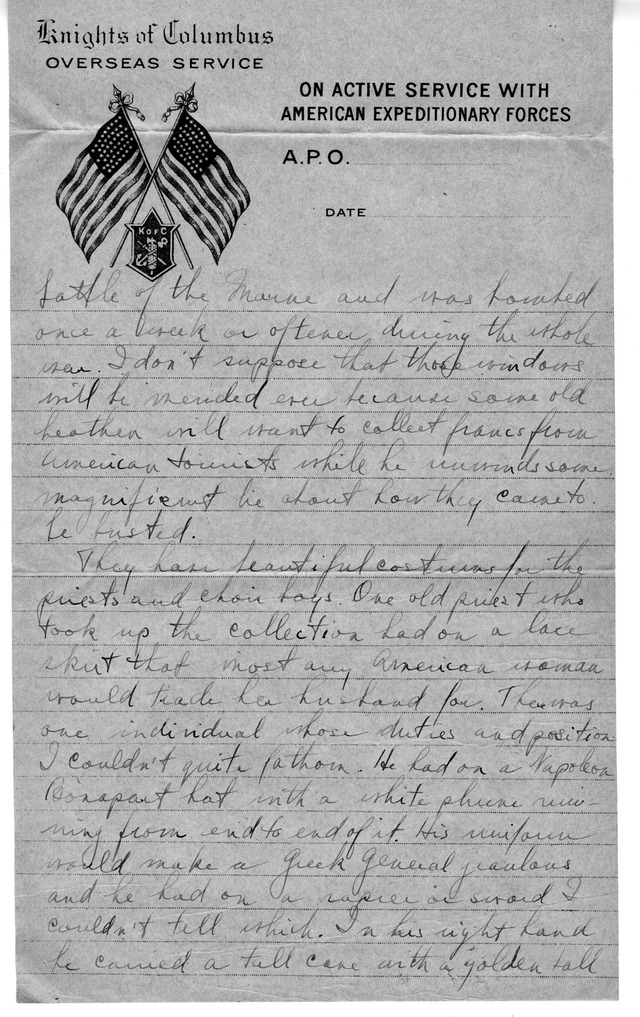 Knights of Columbus
OVERSEAS SERVICE
ON ACTIVE SERVICE WITH
AMERICAN EXPEDITIONARY FORCES
A.P.O.
DATE
K OF C
battle of the Marne and was bombed
once a week or oftener during the whole
war. I don't suppose that those windows
will be mended ever because some old
heathen will want to collect francs from
American tourists while he unwinds some
magnificent lie about how they came to
be busted.
They have beautiful costumes for the
priests and choir boys. One old priest who
took up the collection had on a lace
skirt that most any American woman
would trade her husband for. There was
one individual whose duties and position
I couldn't quite fathom. He had on a Napoleon
Bonapart hat with a white plume run-
ning from end to end of it. His uniform
would make a Greek General jealous
and he had on a rapier or sword I
couldn't tell which. In his right hand
he carried a tall cane with a golden ball